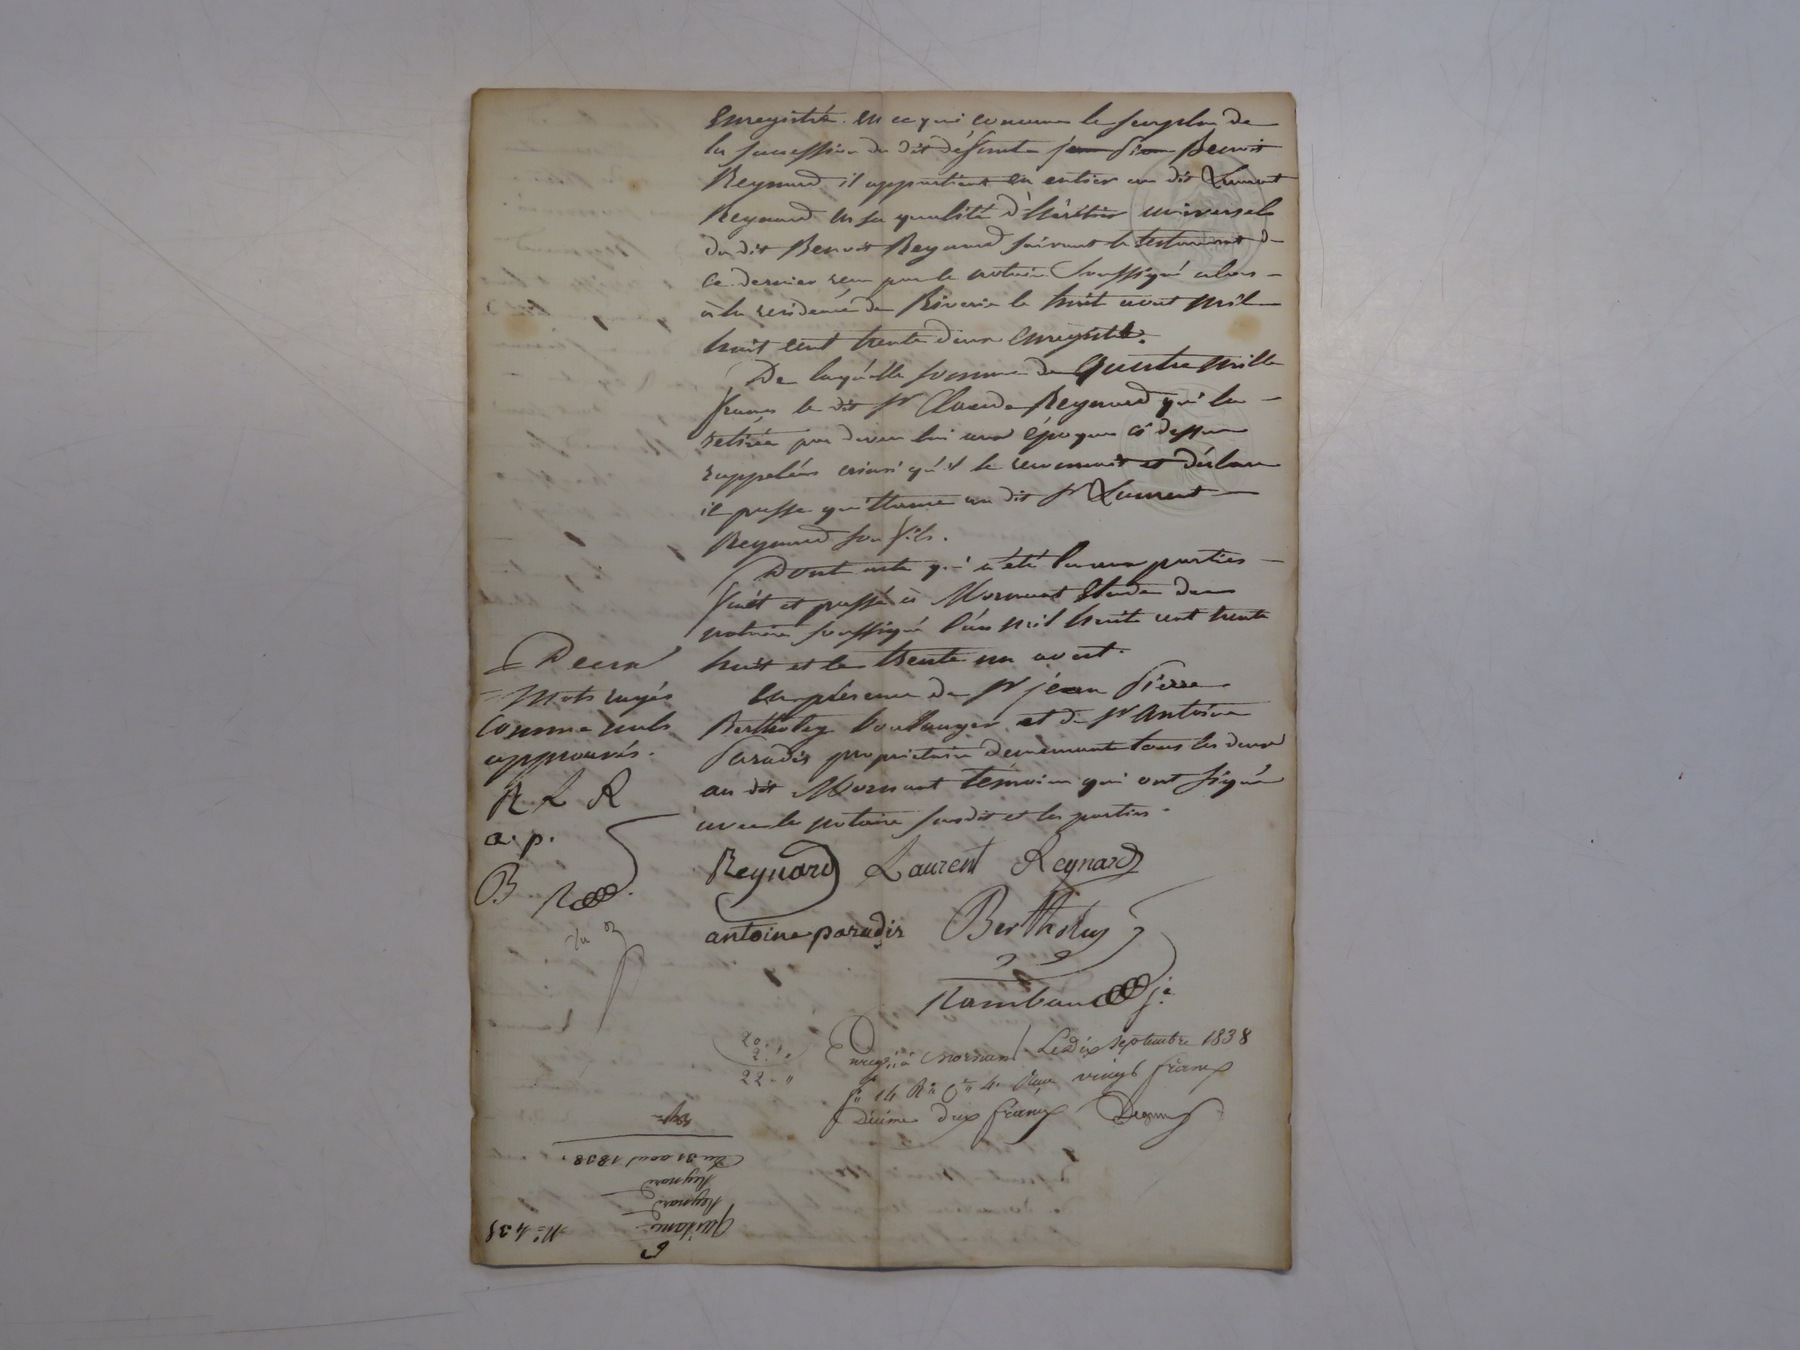 Enregistré. en ce qui concerne le surplus de
la succession du dit défunt jean Pierre Benoit
Reynard il appartient en entier au dit Laurent
Reynard en sa qualité d'héritier universel
du dit Benoit Reynard suivant le testament de
ce dernier reçu par le notaire soussigné alors
à la residence de Riverie le huit aout mil
huit cent trente deux enregistré.
De laquelle somme de Quatre mille
francs le dit Sr Claude Reynard qui l'a
retirée par devers lui aux époques ci dessus
rappelées ainsi qu'il le reconnait et déclare
il passe quittance au dit Sr Laurent
Reynard son fils.
Dont acte qui a été lu aux parties
fait et passé à Mornant Etude du
notaire soussigné l'an mil huit cent trente
huit et le trente un aout.
En présence de Sr jean Pierre
Bertholey boulanger et de Sr Antoine
Paradis propriétaire demeurant tous les deux
au dit Mornant témoins qui ont signé
avec le notaire susdit et les parties
Deux
Mots rayés
comme nuls
approuvés.
R L R
a. p.
B R
Reynard Laurent Reynard
antoine paradis Bertholey
Rambaud je
20. "
2. "
22. "
Enregié à Mornant Le dix septembre 1838
fo 14 Ro Ce 4. Reçu vingt francs
Décime deux francs
No 435
Quitance
Reynard
Reynard
Du 31 aout 1838.